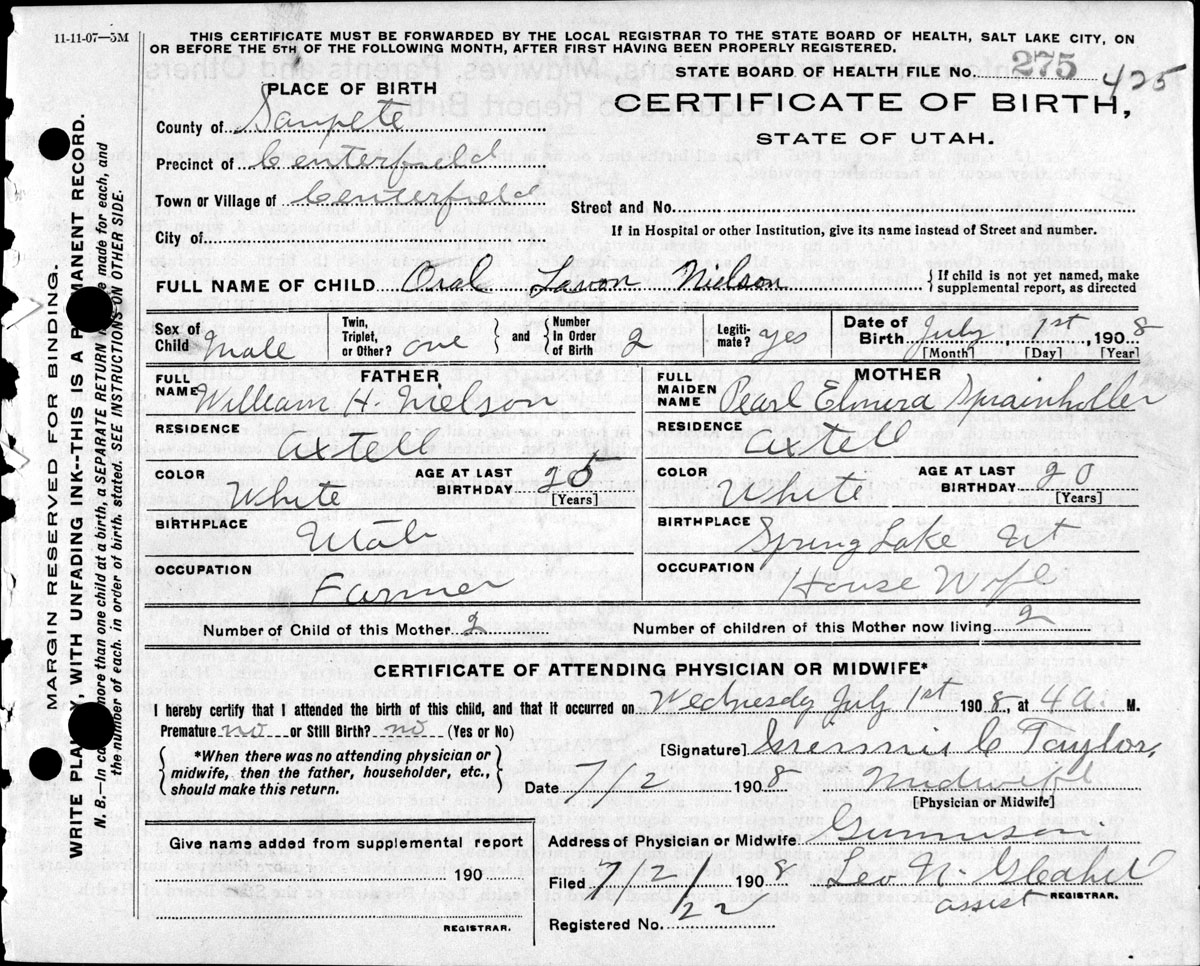 11-11-07—5M
THIS CERTIFICATE MUST BE FORWARDED BY THE LOCAL REGISTRAR TO THE STATE BOARD OF HEALTH, SALT LAKE CITY, ON
OR BEFORE THE 5TH OF THE FOLLOWING MONTH, AFTER FIRST HAVING BEEN PROPERLY REGISTERED.
STATE BOARD OF HEALTH FILE NO. 275 425
PLACE OF BIRTH
CERTIFICATE OF BIRTH,
STATE OF UTAH.
County of Sanpete
Precinct of Centerfield
Town or Village of Centerfield
Street and No.
If in Hospital or other Institution, give its name instead of Street and number.
City of
FULL NAME OF CHILD Oral Lavon Nielson { If child is not yet named, make supplemental report, as directed
Sex of Child Male Twin, Triplet, or Other? one } and { Number In Order of Birth 2 Legiti- mate? yes Date of Birth July 1st, 1908
[Month] [Day] [Year]
FATHER
FULL NAME William H. Nielson
RESIDENCE
Axtell
COLOR White AGE AT LAST BIRTHDAY 25 [Years]
BIRTHPLACE
Utah
OCCUPATION
Farmer
MOTHER
FULL MAIDEN NAME Pearl Elmira Sprainholler
RESIDENCE
Axtell
COLOR White AGE AT LAST BIRTHDAY 20 [Years]
BIRTHPLACE
Spring Lake Ut
OCCUPATION
House Wife
Number of Child of this Mother 2 Number of children of this Mother now living 2
CERTIFICATE OF ATTENDING PHYSICIAN OR MIDWIFE*
I hereby certify that I attended the birth of this child, and that it occurred on Wednesday July 1st 1908, at 4 a. M.
Premature no or Still Birth? no (Yes or No)
{ *When there was no attending physician or midwife, then the father, householder, etc., should make this return. }
[Signature] C Taylor
Date 7/2 1908 Midwife
[Physician or Midwife]
Give name added from supplemental report
190
REGISTRAR.
Address of Physician or Midwife Gunnison
Filed 7/2/ 1908 Leo N.
assist REGISTRAR.
Registered No. 122
MARGIN RESERVED FOR BINDING.
WRITE PLAINLY, WITH UNFADING INK--THIS IS A PERMANENT RECORD.
N. B.—In case of more than one child at a birth, a SEPARATE RETURN must be made for each, and
the number of each, in order of birth, stated. SEE INSTRUCTIONS ON OTHER SIDE.